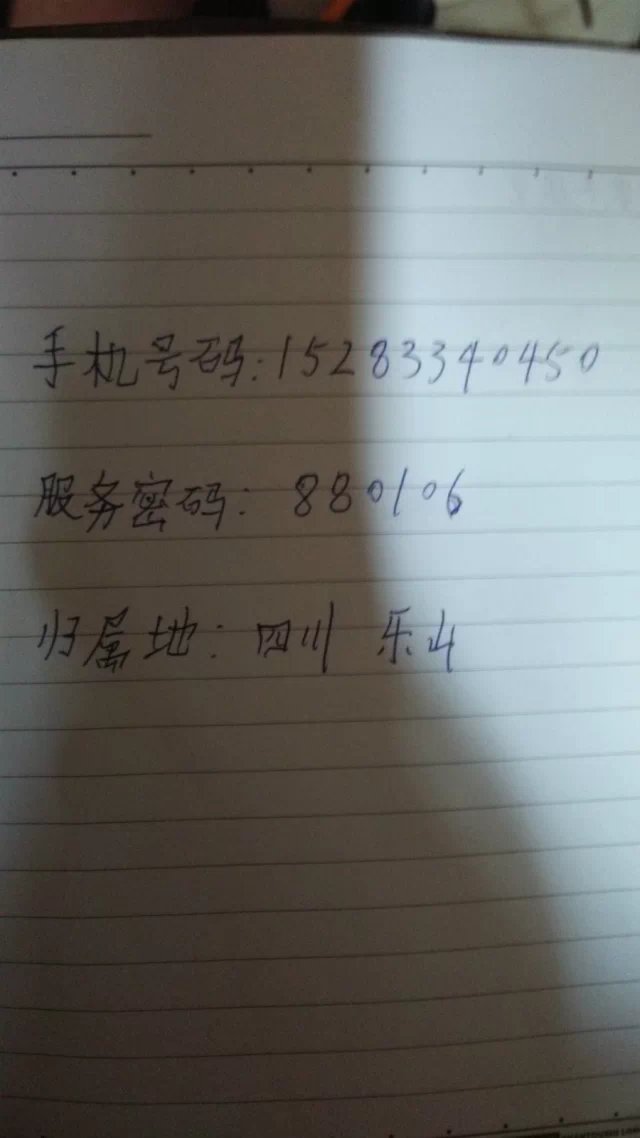 手机号码:15283340450
服务密码: 880106
归属地: 四川 乐山